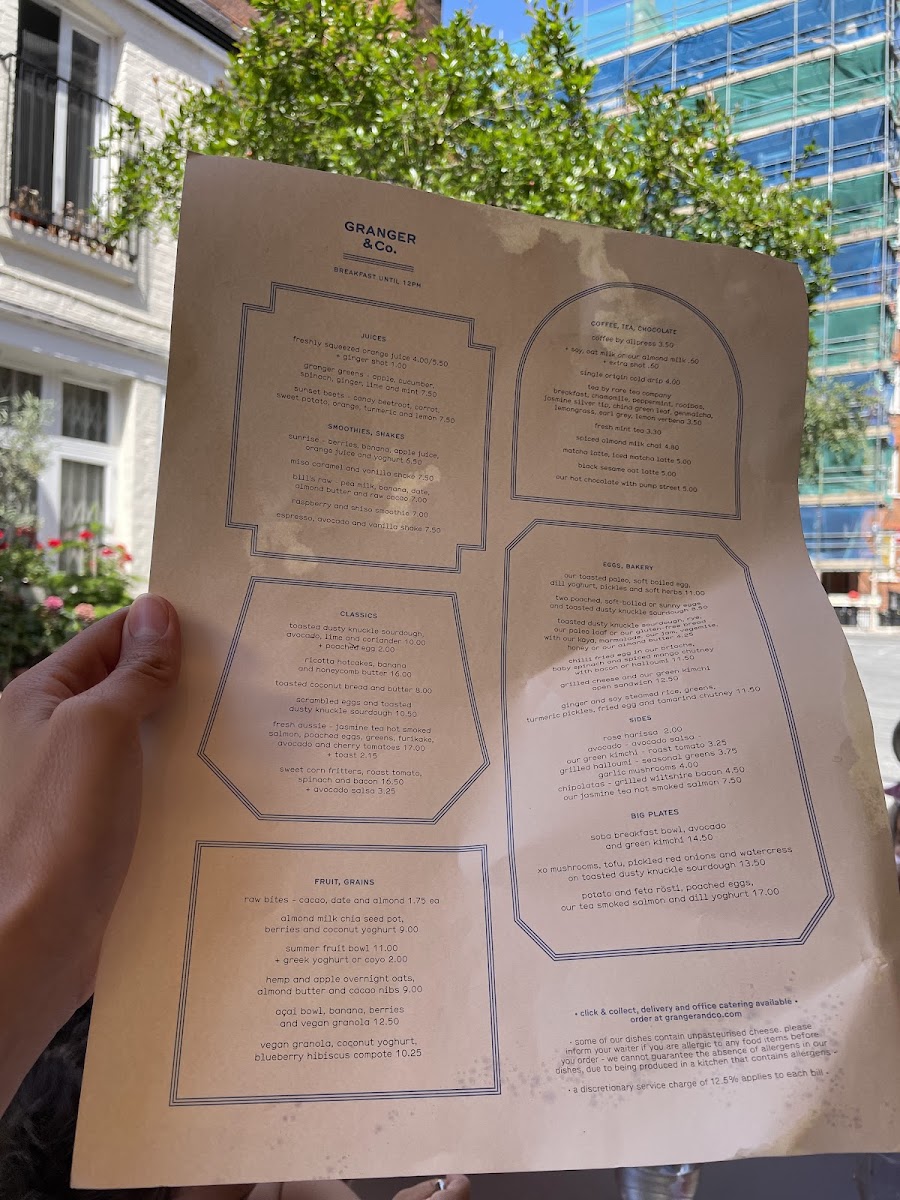 GRANGER
& Co.
BREAKFAST UNTIL 12PM
JUICES
freshly squeezed orange juice 4.00/5.50
+ ginger shot 1.00
granger greens - apple, cucumber,
spinach, ginger, lime and mint 7.50
sunset beets - candy beetroot, carrot,
sweet potato, orange, turmeric and lemon 7.50
SMOOTHIES, SHAKES
sunrise - berries, banana, apple juice,
orange juice and yoghurt 6.50
miso caramel and vanilla shake 7.50
bill's raw - pea milk, banana, date,
almond butter and raw cacao 7.00
raspberry and shiso smoothie 7.00
espresso, avocado and vanilla shake 7.50
CLASSICS
toasted dusty knuckle sourdough,
avocado, lime and coriander 10.00
+ poached egg 2.00
ricotta hotcakes, banana
and honeycomb butter 16.00
toasted coconut bread and butter 8.00
scrambled eggs and toasted
dusty knuckle sourdough 10.50
fresh aussie - jasmine tea hot smoked
salmon, poached eggs, greens, furikake,
avocado and cherry tomatoes 17.00
+ toast 2.15
sweet corn fritters, roast tomato,
spinach and bacon 16.50
+ avocado salsa 3.25
FRUIT, GRAINS
raw bites - cacao, date and almond 1.75 ea
almond milk chia seed pot,
berries and coconut yoghurt 9.00
summer fruit bowl 11.00
+ greek yoghurt or coyo 2.00
hemp and apple overnight oats,
almond butter and cacao nibs 9.00
açai bowl, banana, berries
and vegan granola 12.50
vegan granola, coconut yoghurt,
blueberry hibiscus compote 10.25
COFFEE, TEA, CHOCOLATE
coffee by allpress 3.50
+ soy, oat milk or our almond milk .60
+ extra shot .60
single origin cold drip 4.00
tea by rare tea company
breakfast, chamomile, peppermint, rooibos,
jasmine silver tip, china green leaf, genmaicha,
lemongrass, earl grey, lemon verbena 3.50
fresh mint tea 3.30
spiced almond milk chai 4.80
matcha latte, iced matcha latte 5.00
black sesame oat latte 5.00
our hot chocolate with pump street 5.00
EGGS, BAKERY
our toasted paleo, soft boiled egg,
dill yoghurt, pickles and soft herbs 11.00
two poached, soft-boiled or sunny eggs
and toasted dusty knuckle sourdough 9.50
toasted dusty knuckle sourdough, rye,
our paleo loaf or our gluten free bread
with our kaya, marmalade, our jam, vegemite,
honey or our almond butter 6.25
chilli fried egg in our brioche,
baby spinach and spiced mango chutney
with bacon or halloumi 11.50
grilled cheese and our green kimchi
open sandwich 12.50
ginger and soy steamed rice, greens,
turmeric pickles, fried egg and tamarind chutney 11.50
SIDES
rose harissa 2.00
avocado - avocado salsa -
our green kimchi - roast tomato 3.25
grilled halloumi - seasonal greens 3.75
garlic mushrooms 4.00
chipolatas - grilled wiltshire bacon 4.50
our jasmine tea hot smoked salmon 7.50
BIG PLATES
soba breakfast bowl, avocado
and green kimchi 14.50
xo mushrooms, tofu, pickled red onions and watercress
on toasted dusty knuckle sourdough 13.50
potato and feta rösti, poached eggs,
our tea smoked salmon and dill yoghurt 17.00
• click & collect, delivery and office catering available •
order at grangerandco.com
• some of our dishes contain unpasteurised cheese. please
inform your waiter if you are allergic to any food items before
you order - we cannot guarantee the absence of allergens in our
dishes, due to being produced in a kitchen that contains allergens •
• a discretionary service charge of 12.5% applies to each bill •